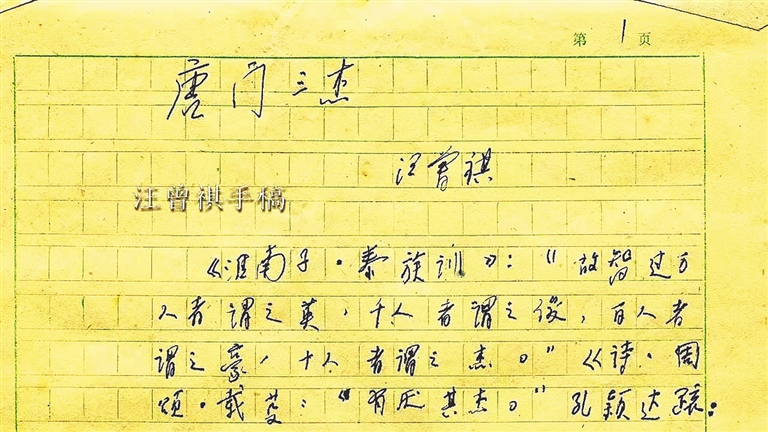 第1页
唐门三杰
汪曾祺
汪曾祺手稿
《淮南子·泰族训》：“故智过万
人者谓之英，千人者谓之俊，百人者
谓之豪，十人者谓之杰。”《诗·周
颂·载芟：“有厌其杰。”孔颖达疏：